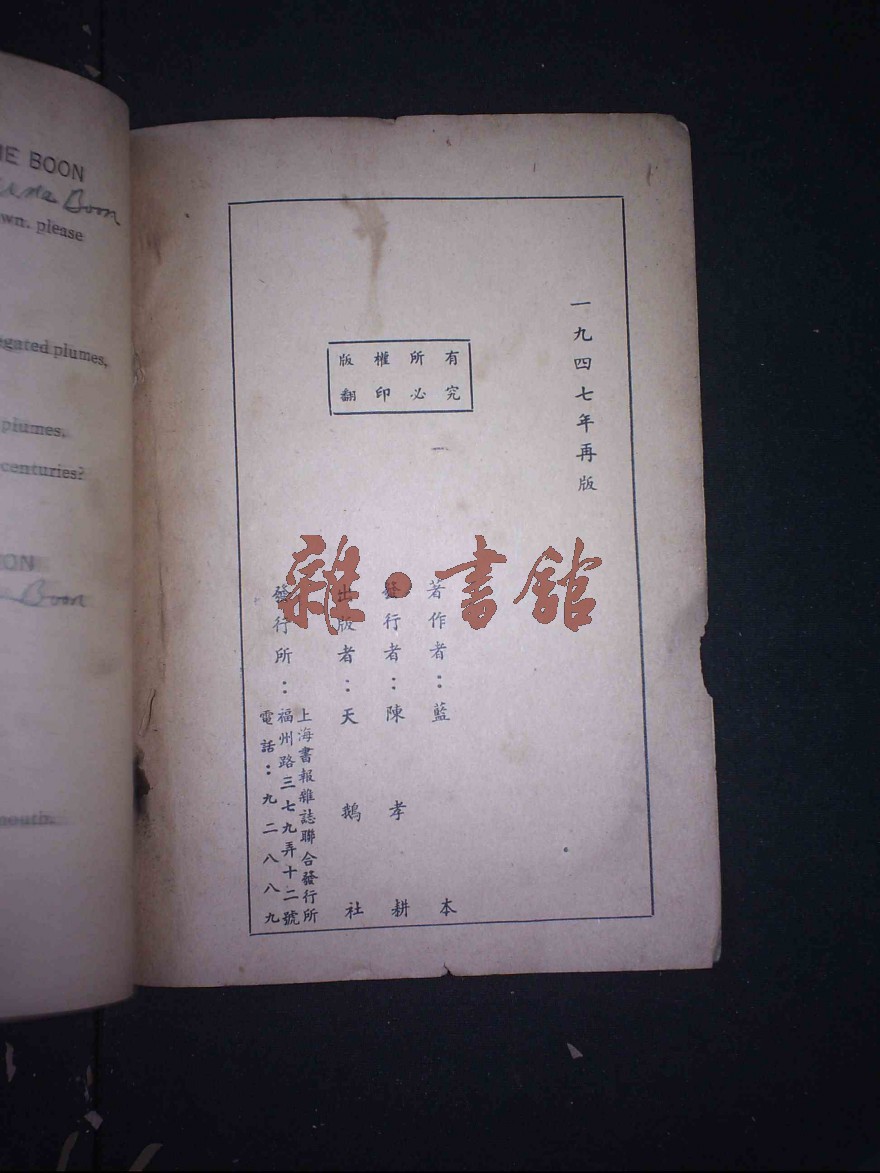 IE BOON
Boon
wn. please
egated plumes,
plumes.
centuries?
ON
Boon
mouth.
一九四七年再版
版權所有
翻印必究
著作者：藍本
發行者：陳孝耕
出版者：天鵝社
發行所：
上海書報雜誌聯合發行所
福州路三七九弄十二號
電話：九二八八九
雜·書館